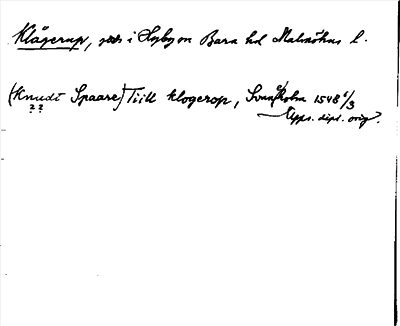 Klågerup, i Hyby sn Bara hd Malmöhus l.
(Knudt Spaare) Tiill klogerop, Svansholm 1548 6/3
? ?
Upps. dipl. orig.